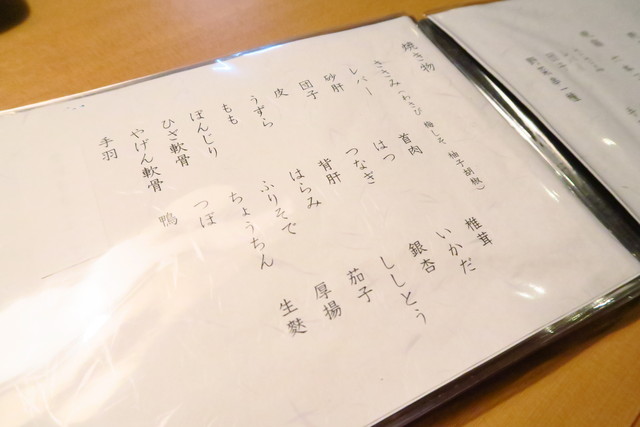 焼き物
ささみ(わさび 梅しそ、柚子胡椒)
レバー
砂肝
団子
皮
うずら
もも
ぼんじり
ひざ軟骨
やげん軟骨
手羽
首肉
はつ
つなぎ
背肝
はらみ
ふりそで
ちょうちん
つぼ
鴨
椎茸
いかだ
銀杏
ししとう
茄子
厚揚
生麩